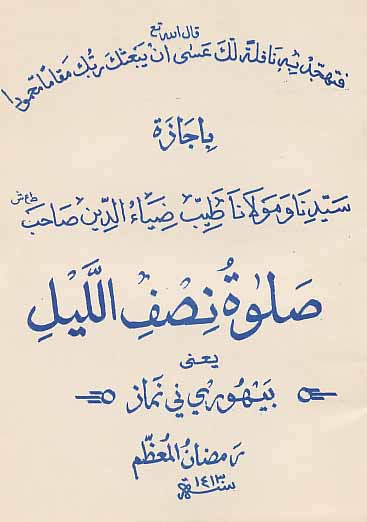 قال الله تع
فتهجّد بِهٖ نَافلةً لكَ عَسٰى اَنْ يبعثكَ ربّك مقامًا محمودا
بِاجَازَة
سَيّدِنَا وَمَولَانَا طَيّب ضِيَاءُ الدِّين صَاحبَ طع ش
صَلٰوةُ نِصْفِ اللَّيْلِ
يعنی
بَيْهوری نی نَماز
رَمضانُ المُعظّم
سنة ١٤١٣